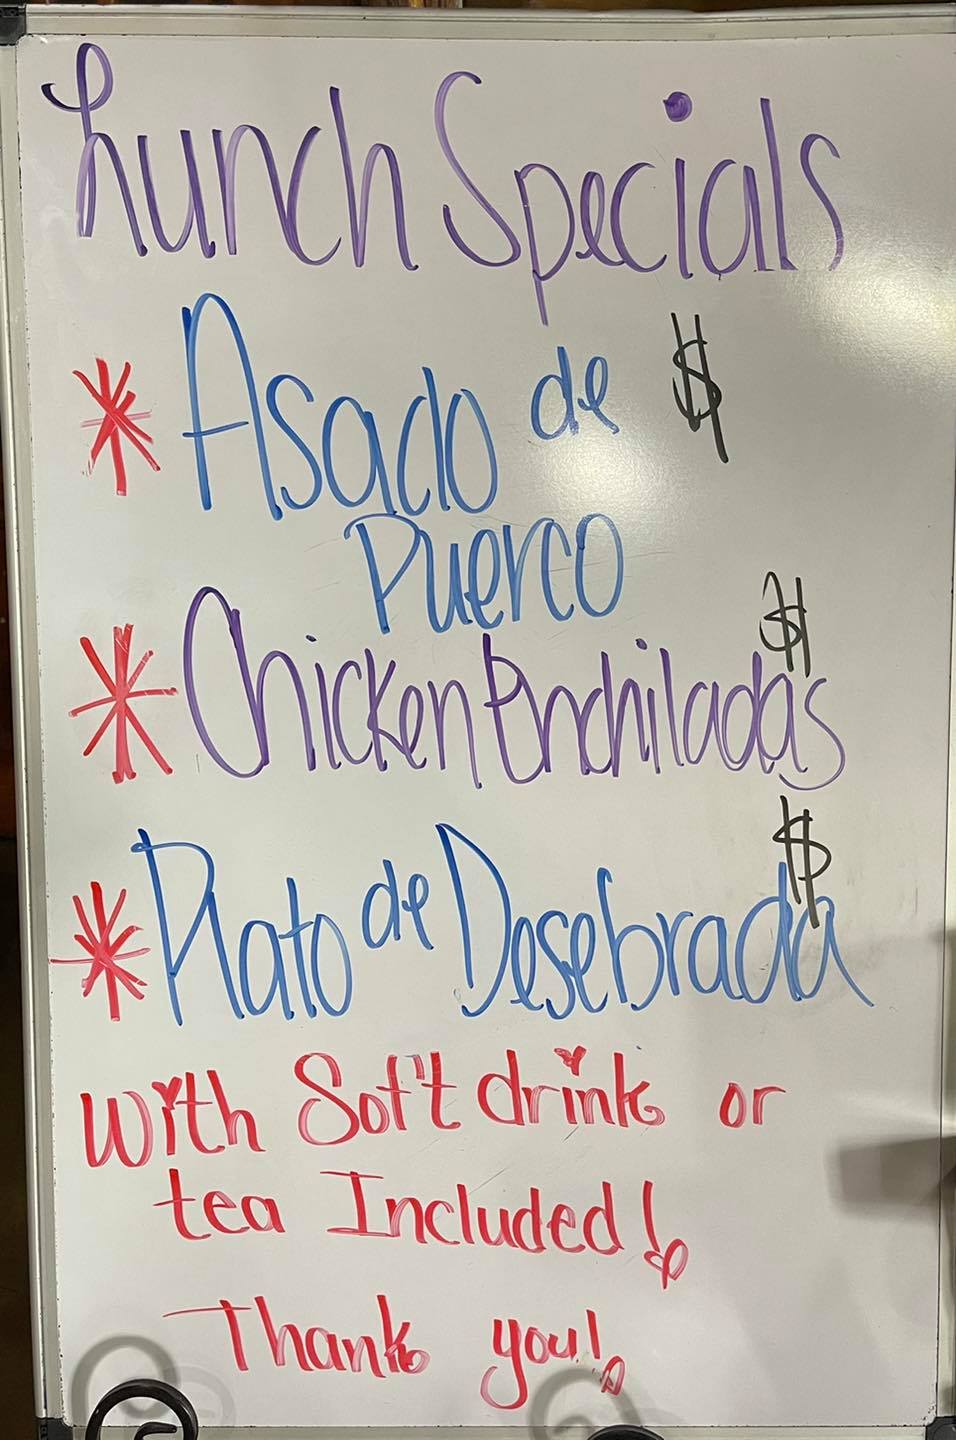 Lunch Specials
* Asado de $
Puerco
$
* Chicken Enchiladas
$
* Plato de Desebrada
With Soft drink or
tea Included!
Thank you!